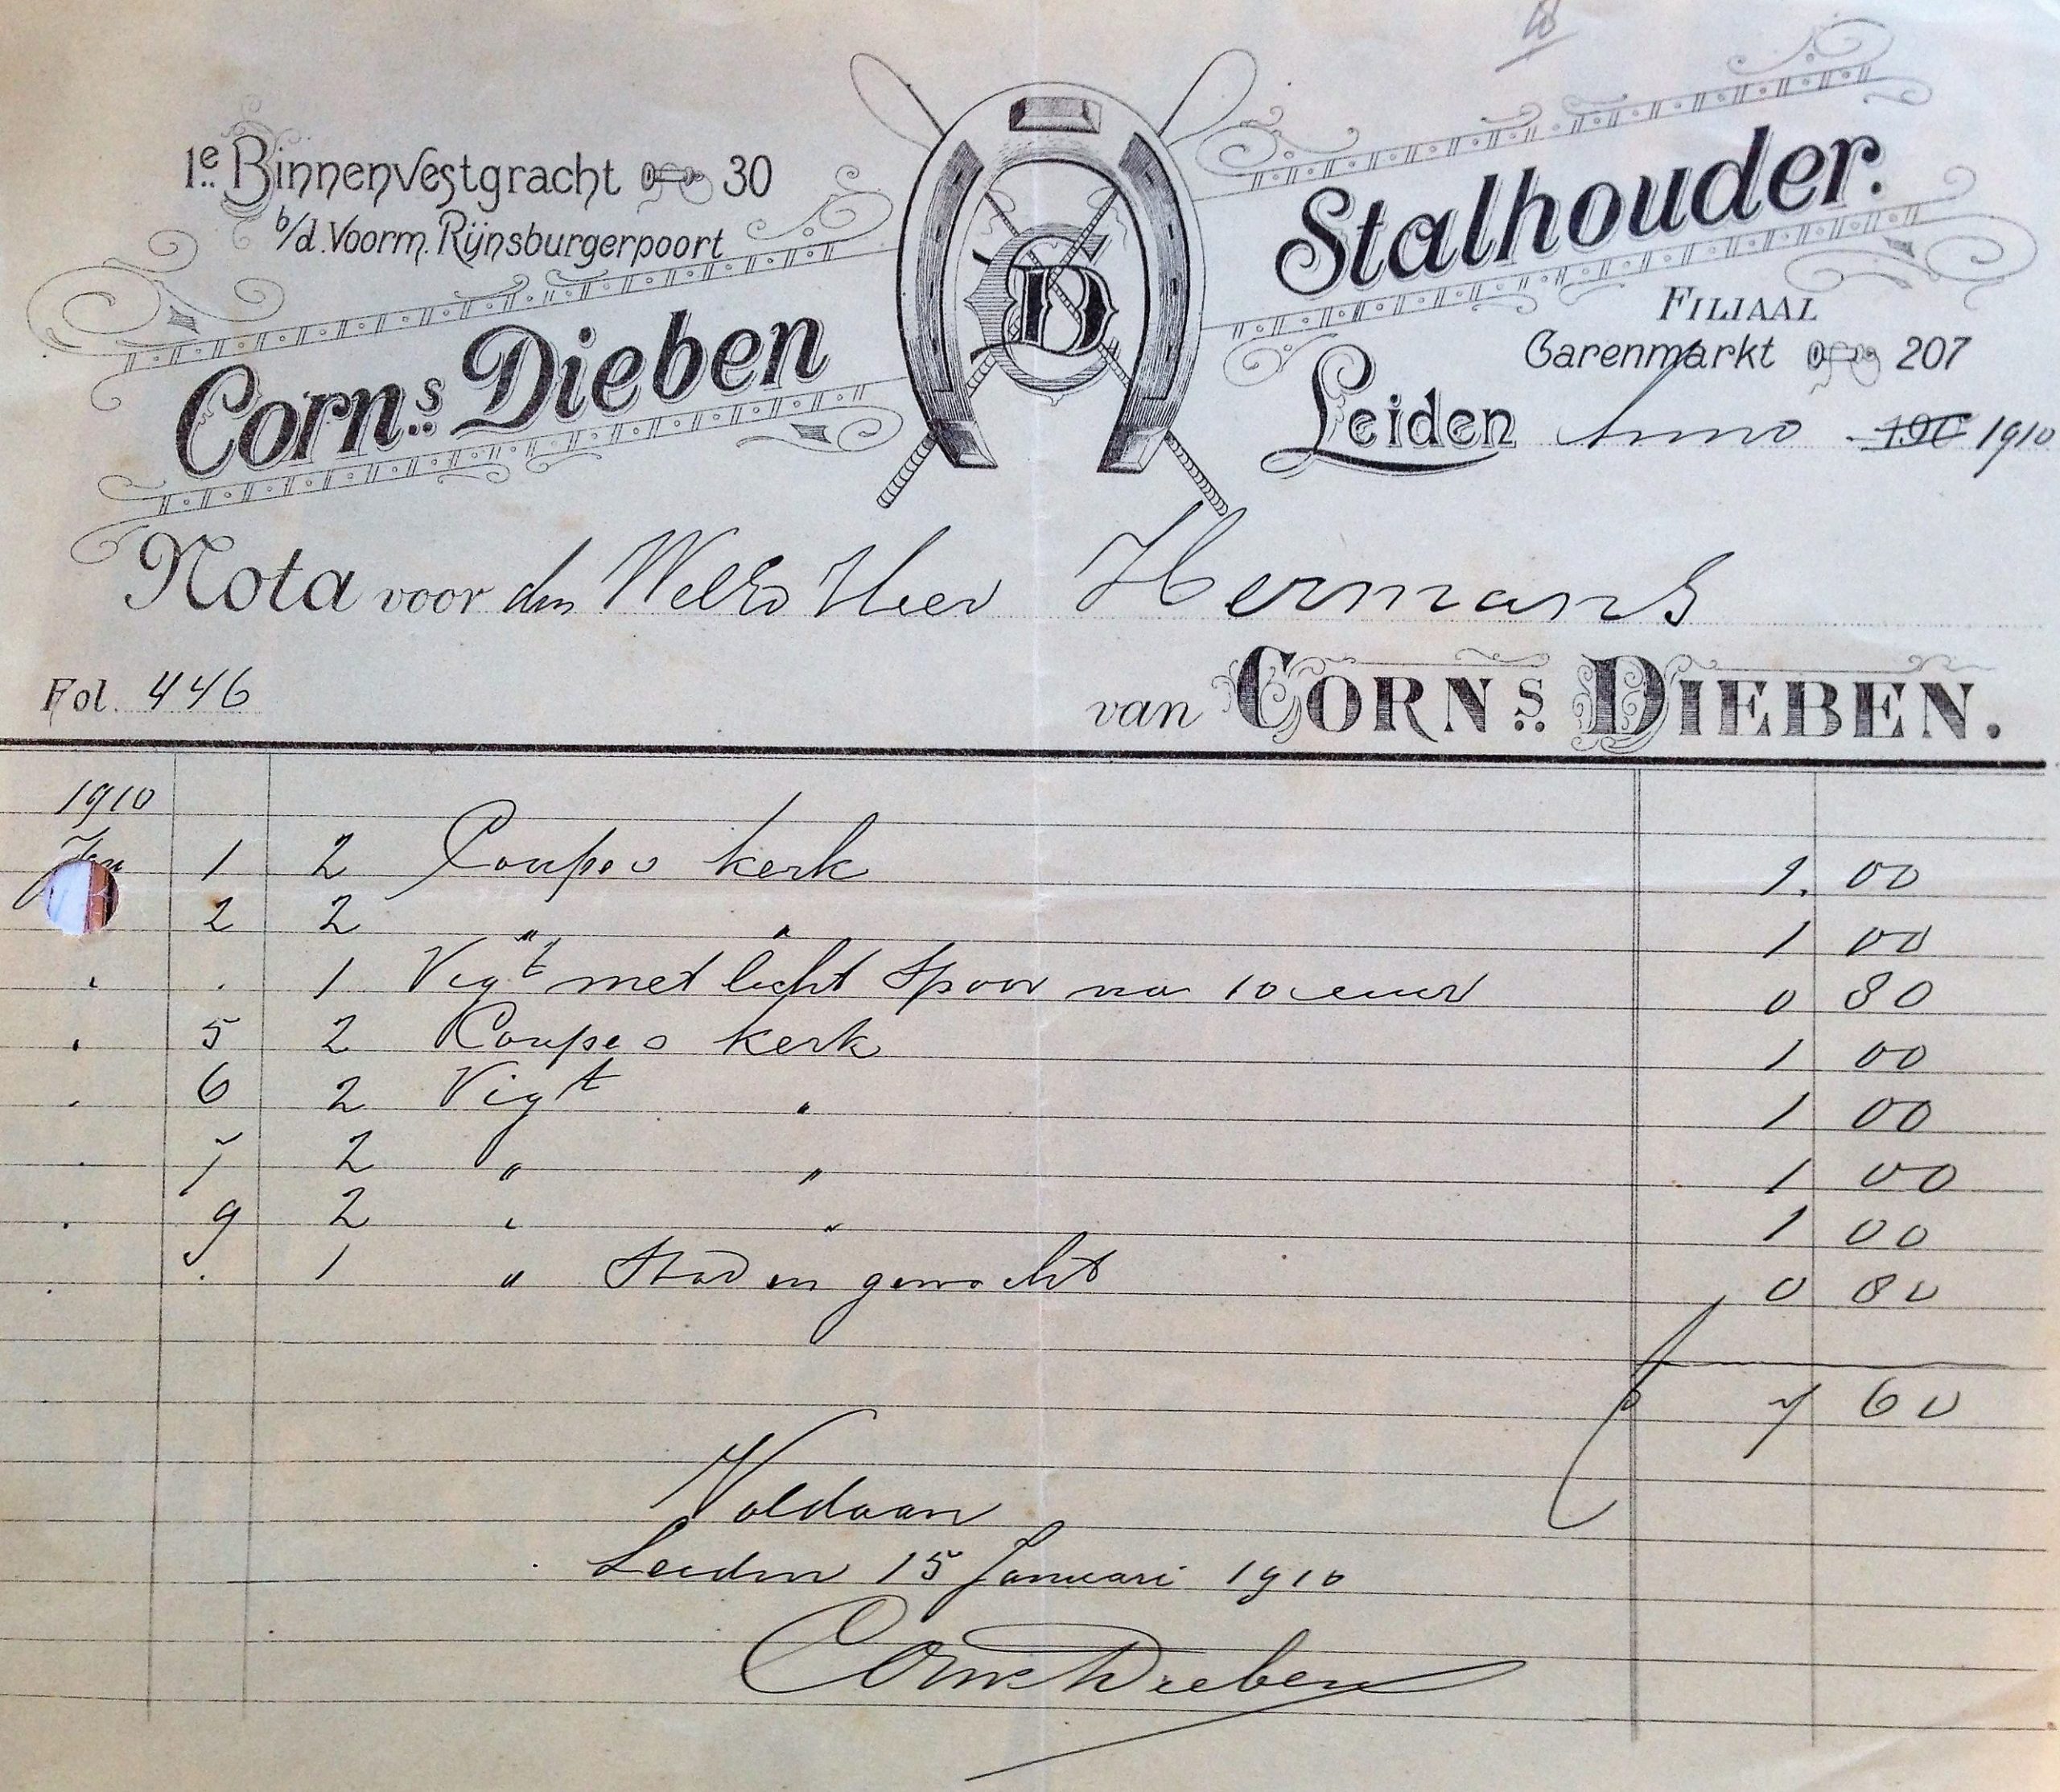 1e Binnenvestgracht 30
b/d. Voorm. Rijnsburgerpoort
Corn.s Dieben
CD
Stalhouder.
FILIAAL
Garenmarkt 207
Leiden Anno 190 1910
Nota voor den WelEd Heer Hermans
Fol. 446
van CORN.S DIEBEN.
1910
Jan 1 2 Coupes kerk 1. 00
2 2 " " 1 00
" " 1 Vigt met licht Spoor na 10 uur 0 80
" 5 2 Coupes kerk 1 00
" 6 2 Vigt " 1 00
" 7 2 " " 1 00
" 9 2 " " 1 00
" " 1 " Stad en gewacht 0 80
f 7 60
Voldaan
Leiden 15 Januari 1910
Corns Dieben